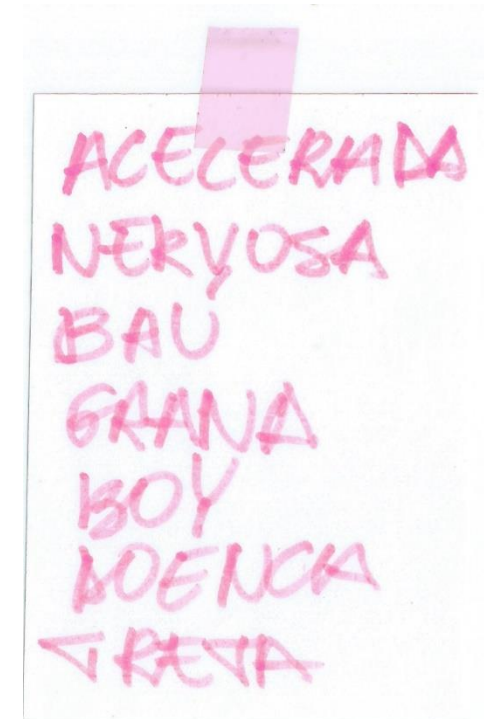 ACELERADA
NERVOSA
BAÚ
GRANA
BOY
DOENCA
TRETA